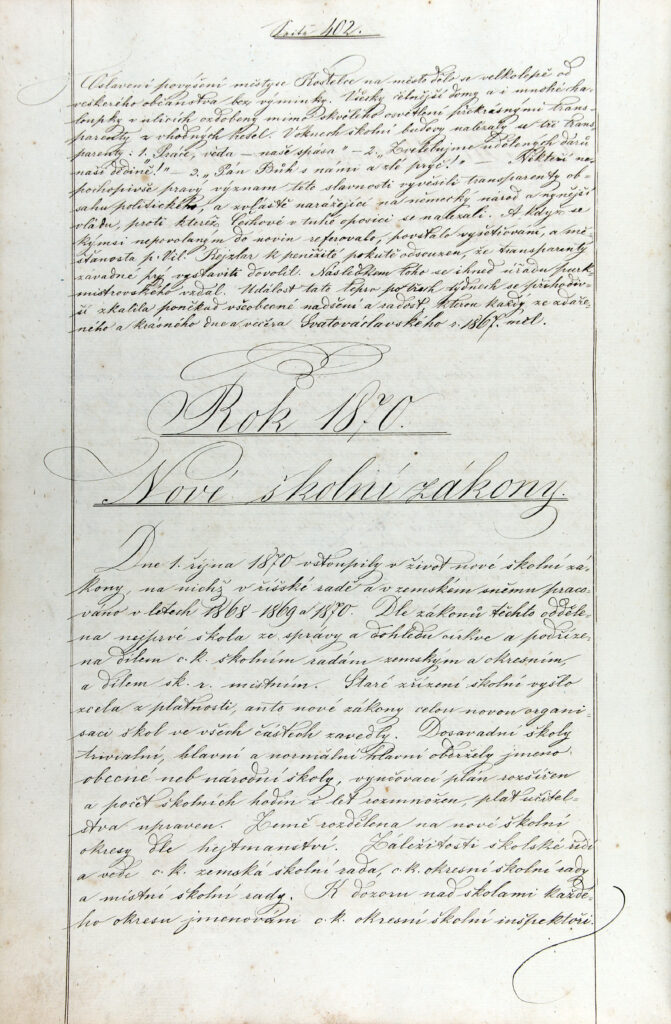 402.
Oslavení povýšení městyse Kostelce na město dělo se velkolepě od
veškerého občanstva bez výminky. Všecky čelnější domy a i mnohé cha-
loupky v ulicích ozdobeny mimo skvělého osvětlení překrásnými trans-
parenty z vhodných hesel. V oknech školní budovy nalezaly se tři trans-
parenty: 1. „Práce, věda – naše spása" – 2. „Zvelebujme udělených darů
naší dědině!" – 3. „Pán Bůh s námi a zlé pryč!" – Někteří ne-
pochopivše pravý význam této slavnosti vyvěsili transparenty ob-
sahu politického, a zvláště narážející na německý národ a nynější
vládu, proti kteréž Čechové v tuhé oposici se nalezali. A když se
kýmsi nepovolaným do novin referovalo, povstalo vyšetřování, a mě-
šťanosta p. Vil. Rejzlar k peněžité pokutě odsouzen, že transparenty
závadné prý vystaviti dovolil. Následkem toho se ihned úřadu purk-
mistrovského vzdal. Událost tato teprv po třech týdnech se přihodiv-
ší zkalila poněkud všeobecné nadšení a radost, kterou každý ze zdaře-
ného a krásného dne a večera Svatováclavského r. 1867. měl.
Rok 1870.
Nové školní zákony.
Dne 1. října 1870 vstoupily v život nové školní zá-
kony, na nichž v říšské radě a v zemském sněmu praco-
váno v letech 1868 1869 a 1870. Dle zákonů těchto odděle-
na nejprvé škola ze správy a dohledu církve a podříze-
na dílem c. k. školním radám zemským a okresním,
a dílem šk. r. místním. Staré zřízení školní vyšlo
zcela z platnosti, anto nové zákony celou novou organi-
saci škol ve všech částech zavedly. Dosavadní školy
trivialní, hlavní a normální hlavní obdržely jméno
obecné neb národní školy, vyučovací plán rozšířen
a počet školních hodin i let rozmnožen, plat učitel-
stva upraven. Země rozdělena na nové školní
okresy dle hejtmanství. Záležitosti školské řídí
a vede c. k. zemská školní rada, c. k. okresní školní rady
a místní školní rady. K dozoru nad školami každé-
ho okresu jmenováni c. k. okresní školní inspektoři.